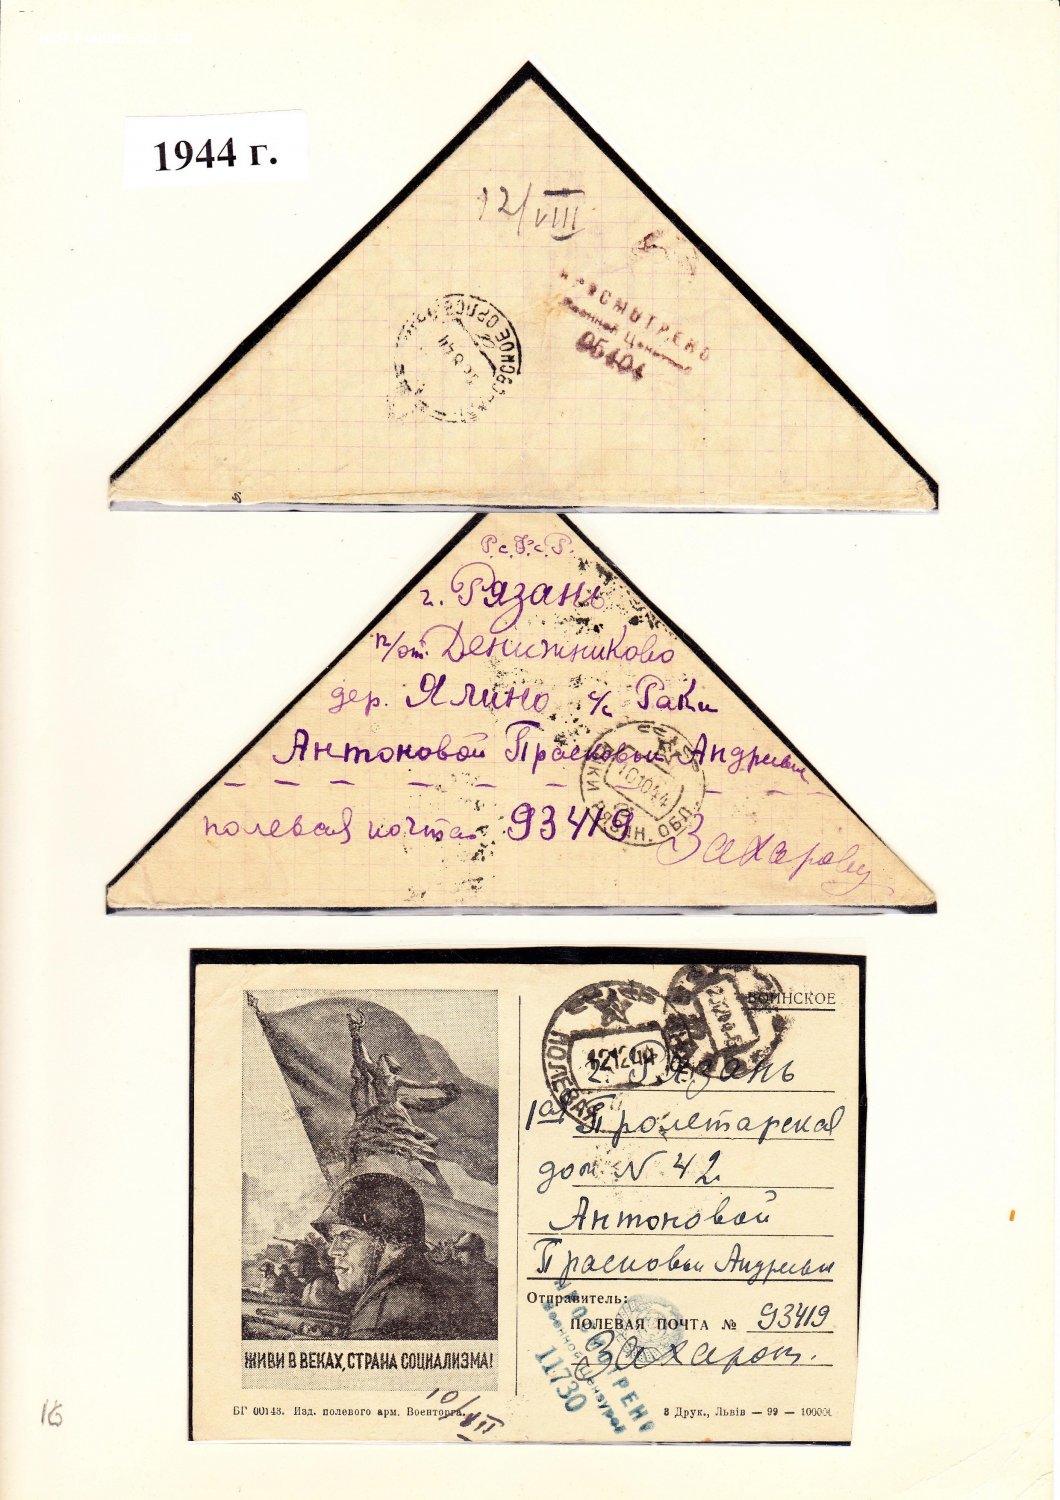 1944 г.
12/VIII
ПРОСМОТРЕНО
Военной Ценз
05404
Р.С.Ф.С.Р.
г. Рязань
п/от. Денижниково
дер. Ялино с/с Раки
Антоновой Прасковьи Андревне
полевая почта 93419 Захарову
101044
ВОИНСКОЕ
ПОЛЕВАЯ
121244
г. Рязань
1ая Пролетарская
дом N 42
Антоновой
Прасковьи Андревне
Отправитель:
ПОЛЕВАЯ ПОЧТА № 93419
Захаров.
ПРОСМОТРЕНО
Военной Цензурой
11730
ЖИВИ В ВЕКАХ, СТРАНА СОЦИАЛИЗМА!
БГ 00143. Изд. полевого арм. Военторга.
8 Друк., Львів — 99 — 100000
16